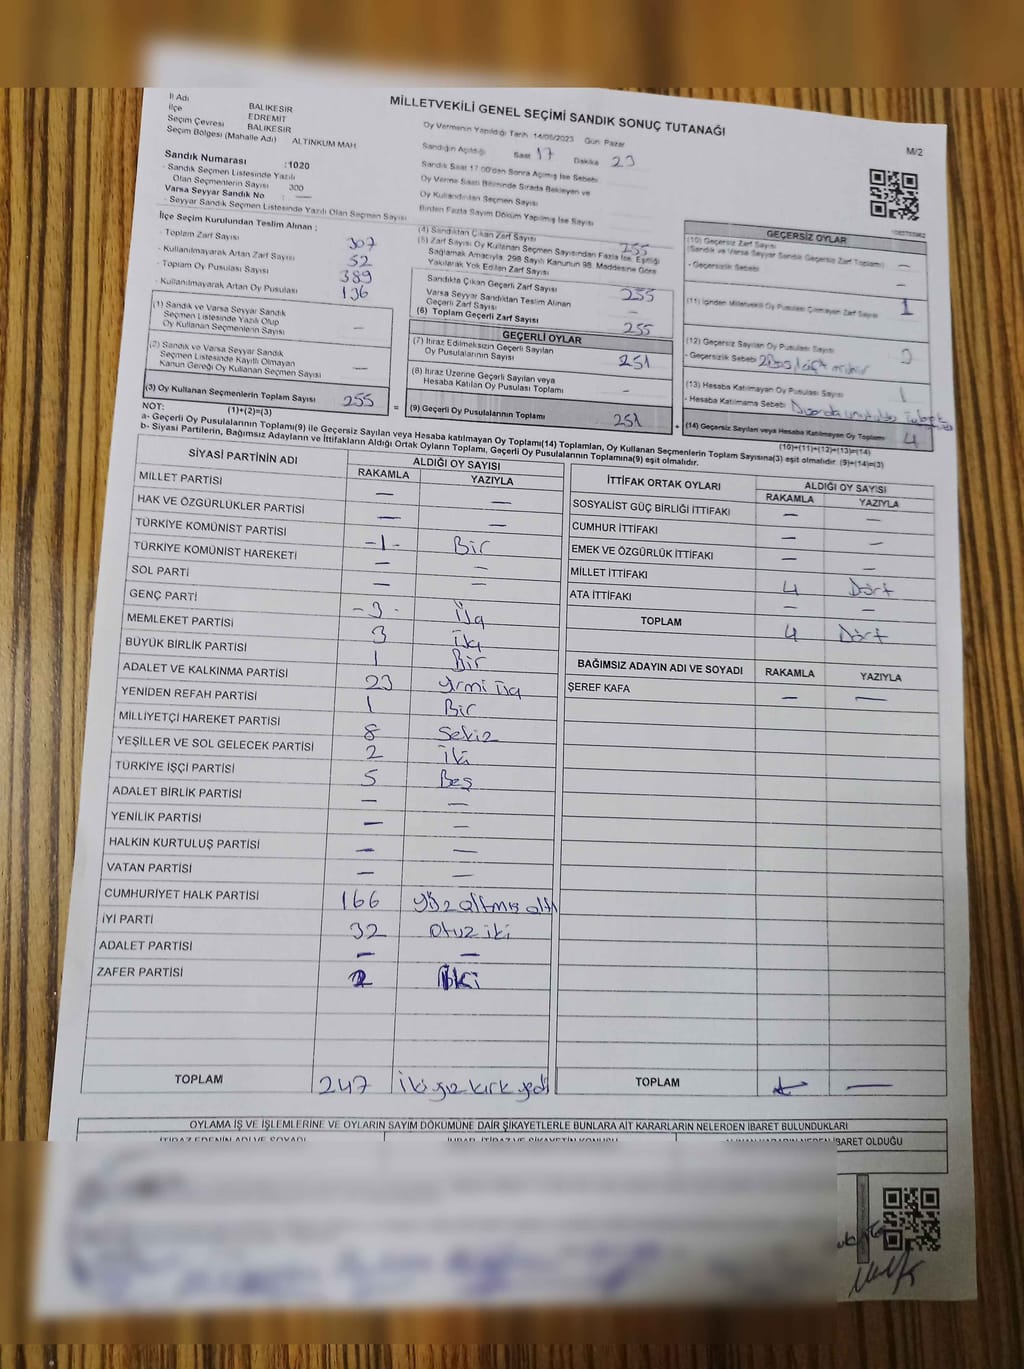 MİLLETVEKİLİ GENEL SEÇİMİ SANDIK SONUÇ TUTANAĞI
M/2
İl Adı BALIKESİR
İlçe EDREMİT
Seçim Çevresi BALIKESİR
Seçim Bölgesi (Mahalle Adı) ALTINKUM MAH
Oy Vermenin Yapıldığı Tarih 14/05/2023 Gün: Pazar
Sandığın Açıldığı Saat 17 Dakika 23
Sandık Saat 17:00'dan Sonra Açılmış İse Sebebi
Oy Verme Saati Bitiminde Sırada Bekleyen ve
Oy Kullandırılan Seçmen Sayısı
Birden Fazla Sayım Döküm Yapılmış İse Sayısı
Sandık Numarası :1020
- Sandık Seçmen Listesinde Yazılı
Olan Seçmenlerin Sayısı 300
Varsa Seyyar Sandık No : —
- Seyyar Sandık Listesinde Yazılı Olan Seçmen Sayısı
İlçe Seçim Kurulundan Teslim Alınan :
- Toplam Zarf Sayısı 307
- Kullanılmayarak Artan Zarf Sayısı 52
- Toplam Oy Pusulası Sayısı 389
- Kullanılmayarak Artan Oy Pusulası 136
(1) Sandık ve Varsa Seyyar Sandık
Seçmen Listesinde Yazılı Olup
Oy Kullanan Seçmenlerin Sayısı —
(2) Sandık ve Varsa Seyyar Sandık
Seçmen Listesinde Kayıtlı Olmayan
Kanun Gereği Oy Kullanan Seçmen Sayısı —
(3) Oy Kullanan Seçmenlerin Toplam Sayısı 255
(1)+(2)=(3)
(4) Sandıktan Çıkan Zarf Sayısı 255
(5) Zarf Sayısı Oy Kullanan Seçmen Sayısından Fazla İse, Eşitliği
Sağlamak Amacıyla, 298 Sayılı Kanunun 98. Maddesine Göre
Yakılarak Yok Edilen Zarf Sayısı
Sandıkta Çıkan Geçerli Zarf Sayısı 255
Varsa Seyyar Sandıktan Teslim Alınan
Geçerli Zarf Sayısı —
(6) Toplam Geçerli Zarf Sayısı 255
GEÇERLİ OYLAR
(7) İtiraz Edilmeksizin Geçerli Sayılan
Oy Pusulalarının Sayısı 251
(8) İtiraz Üzerine Geçerli Sayılan veya
Hesaba Katılan Oy Pusulası Toplamı -
= (9) Geçerli Oy Pusulalarının Toplamı 251
GEÇERSİZ OYLAR
(10) Geçersiz Zarf Sayısı
(Sandık ve Varsa Seyyar Sandık Geçersiz Zarf Toplamı) —
- Geçersizlik Sebebi —
(11) İçinden Milletvekili Oy Pusulası Çıkmayan Zarf Sayısı 1
(12) Geçersiz Sayılan Oy Pusulası Sayısı
- Geçersizlik Sebebi
(13) Hesaba Katılmayan Oy Pusulası Sayısı 1
- Hesaba Katılmama Sebebi
+ (14) Geçersiz Sayılan veya Hesaba Katılmayan Oy Toplamı 4
(10)+(11)+(12)+(13)=(14)
NOT:
a- Geçerli Oy Pusulaları Toplamı(9) ile Geçersiz Sayılan veya Hesaba katılmayan Oy Toplamı(14) Toplamları, Oy Kullanan Seçmenlerin Toplam Sayısına(3) eşit olmalıdır. (9)+(14)=(3)
b- Siyasi Partilerin, Bağımsız Adayların ve İttifakların Aldığı Ortak Oyların Toplamı, Geçerli Oy Pusulalarının Toplamına(9) eşit olmalıdır.
SİYASİ PARTİNİN ADI ALDIĞI OY SAYISI
RAKAMLA YAZIYLA
MİLLET PARTİSİ — —
HAK VE ÖZGÜRLÜKLER PARTİSİ — —
TÜRKİYE KOMÜNİST PARTİSİ -1- Bir
TÜRKİYE KOMÜNİST HAREKETİ — —
SOL PARTİ — —
GENÇ PARTİ -3- Üç
MEMLEKET PARTİSİ 3 Üç
BÜYÜK BİRLİK PARTİSİ 1 Bir
ADALET VE KALKINMA PARTİSİ 23 yirmi üç
YENİDEN REFAH PARTİSİ 1 Bir
MİLLİYETÇİ HAREKET PARTİSİ 8 Sekiz
YEŞİLLER VE SOL GELECEK PARTİSİ 2 İki
TÜRKİYE İŞÇİ PARTİSİ 5 Beş
ADALET BİRLİK PARTİSİ — —
YENİLİK PARTİSİ — —
HALKIN KURTULUŞ PARTİSİ — —
VATAN PARTİSİ — —
CUMHURİYET HALK PARTİSİ 166 yüz altmış altı
İYİ PARTİ 32 otuz iki
ADALET PARTİSİ — —
ZAFER PARTİSİ 2 İki
TOPLAM 247 İki yüz kırk yedi
İTTİFAK ORTAK OYLARI ALDIĞI OY SAYISI
RAKAMLA YAZIYLA
SOSYALİST GÜÇ BİRLİĞİ İTTİFAKI — —
CUMHUR İTTİFAKI — —
EMEK VE ÖZGÜRLÜK İTTİFAKI — —
MİLLET İTTİFAKI 4 Dört
ATA İTTİFAKI — —
TOPLAM 4 Dört
BAĞIMSIZ ADAYIN ADI VE SOYADI RAKAMLA YAZIYLA
ŞEREF KAFA — —
TOPLAM —
OYLAMA İŞ VE İŞLEMLERİNE VE OYLARIN SAYIM DÖKÜMÜNE DAİR ŞİKAYETLERLE BUNLARA AİT KARARLARIN NELERDEN İBARET BULUNDUKLARI
İTİRAZ EDENİN ADI VE SOYADI
İBARET OLDUĞU